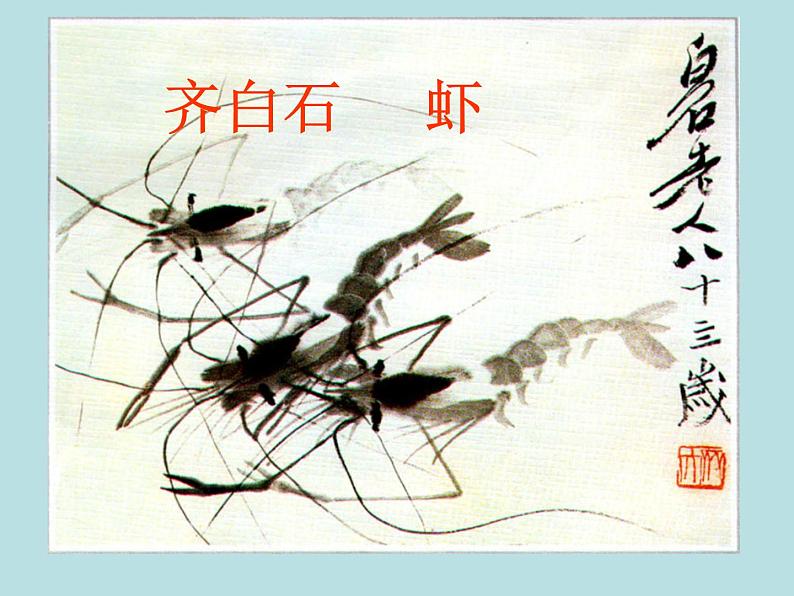 齐白石 虾
白石老人八十三歲